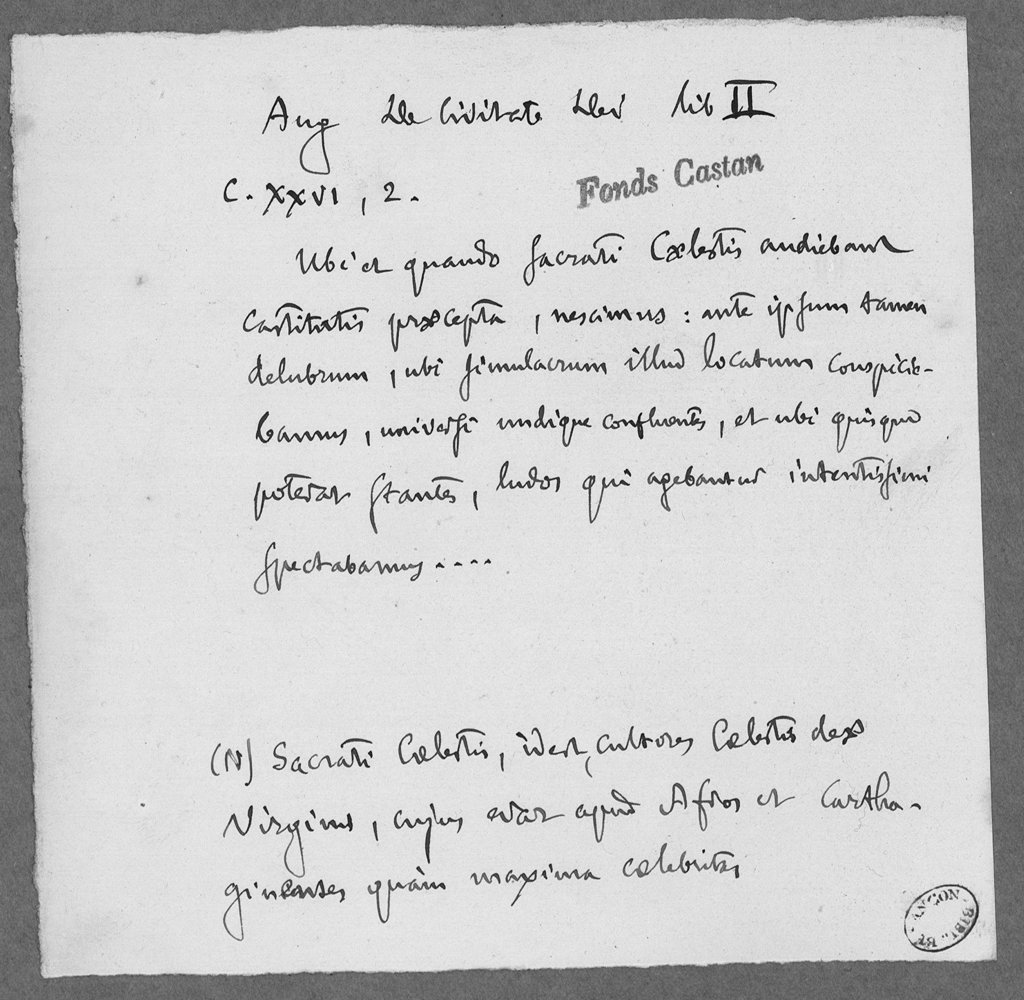 Aug De Civitate Dei lib II
Fonds Castan
C. XXVI, 2.
Ubi et quando sacrati Cælestis audiebant
castitatis præcepta, nescimus : ante ipsum tamen
delubrum, ubi simulacrum illud locatum conspicie-
bamus, universi undique confluentes, et ubi quisque
poterat stantes, ludos qui agebantur intentissimi
spectabamus ....
(N) Sacrati Cælestis, id est, cultores Cælestis deæ
Virginis, cujus erat apud Afros et Cartha-
ginenses quàm maxima celebritas
BIBL. BESANÇON